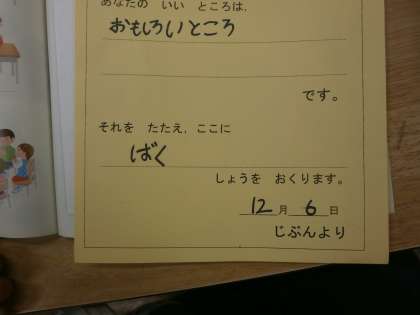 あなたの いい ところは、
おもしろいところ
です。
それを たたえ、ここに
ばく
しょうを おくります。
12月 6日
じぶんより